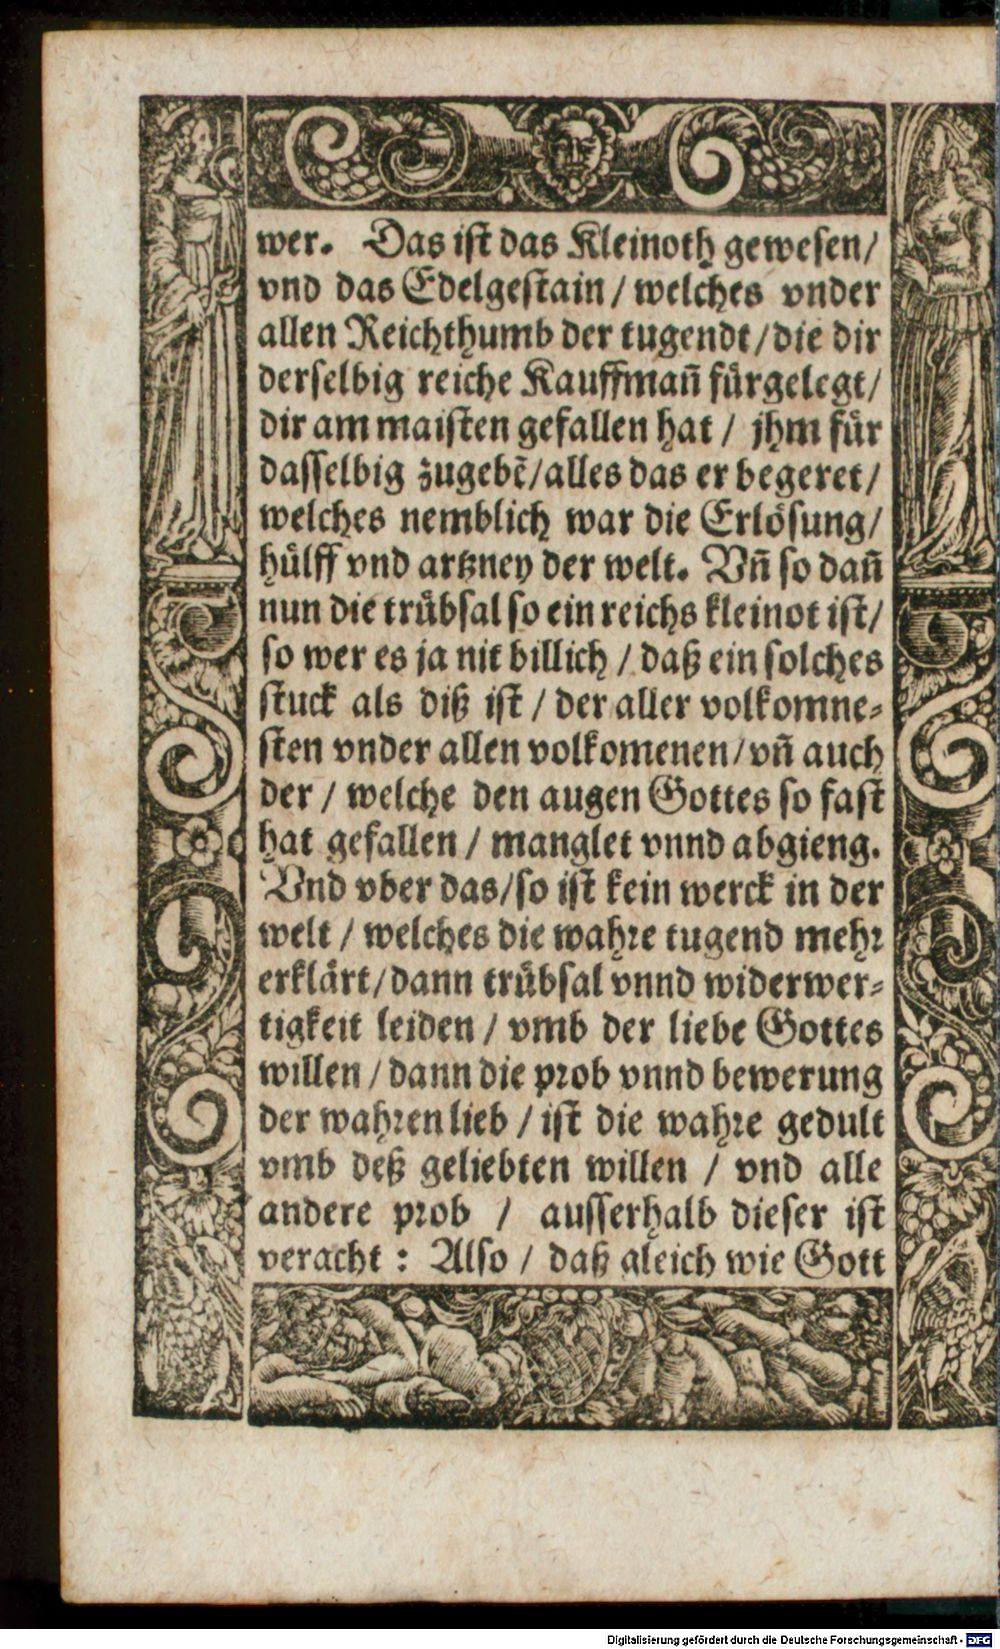 wer. Das iſt das Kleinoth geweſen/
vnd das Edelgeſtain / welches vnder
allen Reichthumb der tugendt/die dir
derſelbig reiche Kauffmañ fürgelegt/
dir am maiſten gefallen hat / jhm für
daſſelbig zugebẽ/alles das er begeret/
welches nemblich war die Erlöſung/
hülff vnd artzney der welt. Vñ ſo dañ
nun die trübſal ſo ein reichs kleinot iſt/
ſo wer es ja nit billich / daß ein ſolches
ſtuck als diß iſt / der aller volkomne⸗
ſten vnder allen volkomenen/vñ auch
der / welche den augen Gottes ſo faſt
hat gefallen / manglet vnnd abgieng.
Vnd vber das/ſo iſt kein werck in der
welt / welches die wahre tugend mehr
erklärt/dann trübſal vnnd widerwer⸗
tigkeit leiden / vmb der liebe Gottes
willen / dann die prob vnnd bewerung
der wahren lieb / iſt die wahre gedult
vmb deß geliebten willen / vnd alle
andere prob / auſſerhalb dieſer iſt
veracht : Alſo / daß gleich wie Gott
Digitalisierung gefördert durch die Deutsche Forschungsgemeinschaft - DFG